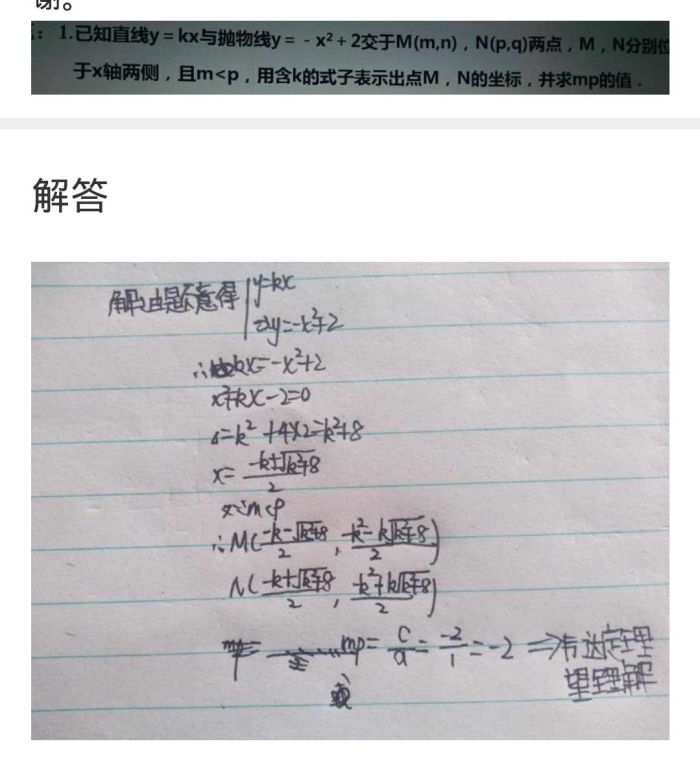 谢。
1.已知直线y=kx与抛物线y=-x²+2交于M(m,n)，N(p,q)两点，M，N分别位
于x轴两侧，且m<p，用含k的式子表示出点M，N的坐标，并求mp的值.
解答
解由题意得 y=kx
y=-x²+2
∴kx=-x²+2
x²+kx-2=0
Δ=k²+4×2=k²+8
x=(-k±√(k²+8))/2
∵m<p
∴M((-k-√(k²+8))/2, (-k²-k√(k²+8))/2)
N((-k+√(k²+8))/2, (-k²+k√(k²+8))/2)
mp=c/a=-2/1=-2 ⇒韦达定理
理解